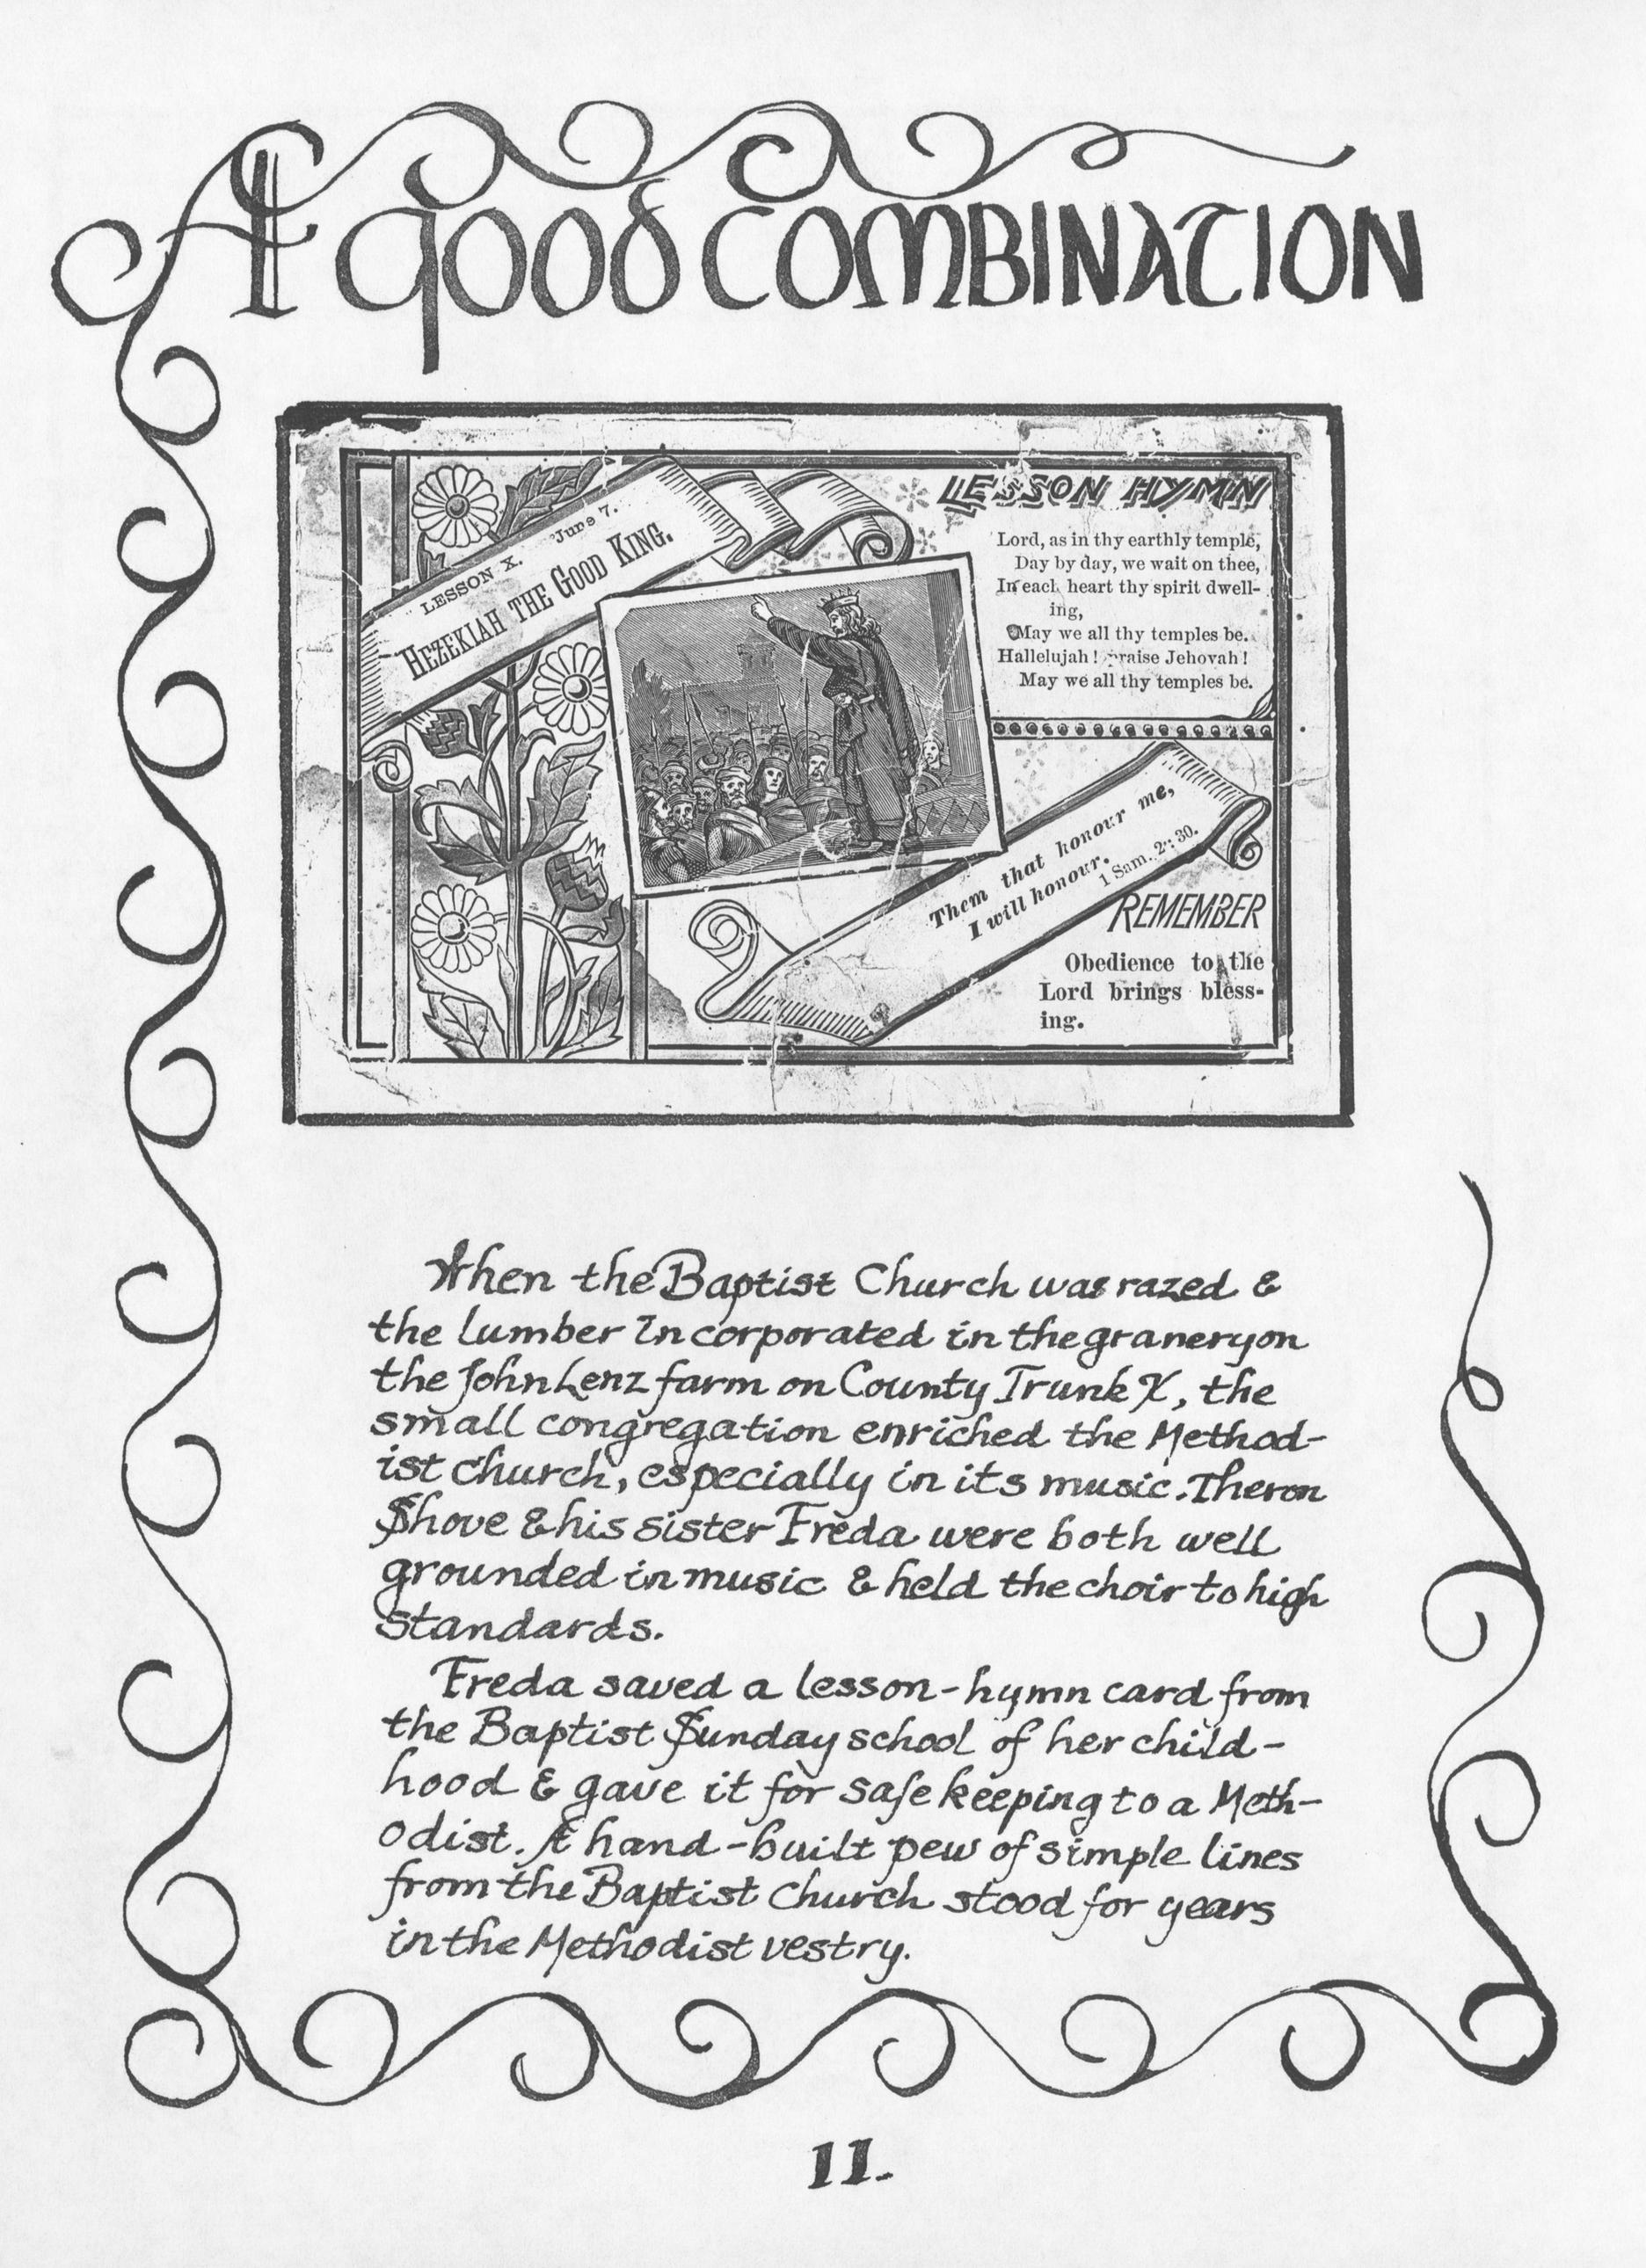 A good COMBINATION
LESSON X. June 7.
HEZEKIAH THE GOOD KING.
LESSON HYMN
Lord, as in thy earthly temple,
Day by day, we wait on thee,
In each heart thy spirit dwell-
ing,
May we all thy temples be.
Hallelujah! praise Jehovah!
May we all thy temples be.
Them that honour me,
I will honour.
1 Sam. 2:30.
REMEMBER
Obedience to the
Lord brings bless-
ing.
When the Baptist Church was razed &
the lumber incorporated in the granery on
the John Lenz farm on County Trunk X, the
small congregation enriched the Method-
ist church, especially in its music. Theron
Shove & his sister Freda were both well
grounded in music & held the choir to high
standards.
Freda saved a lesson-hymn card from
the Baptist Sunday school of her child-
hood & gave it for safe keeping to a Meth-
odist. A hand-built pew of simple lines
from the Baptist Church stood for years
in the Methodist vestry.
11.